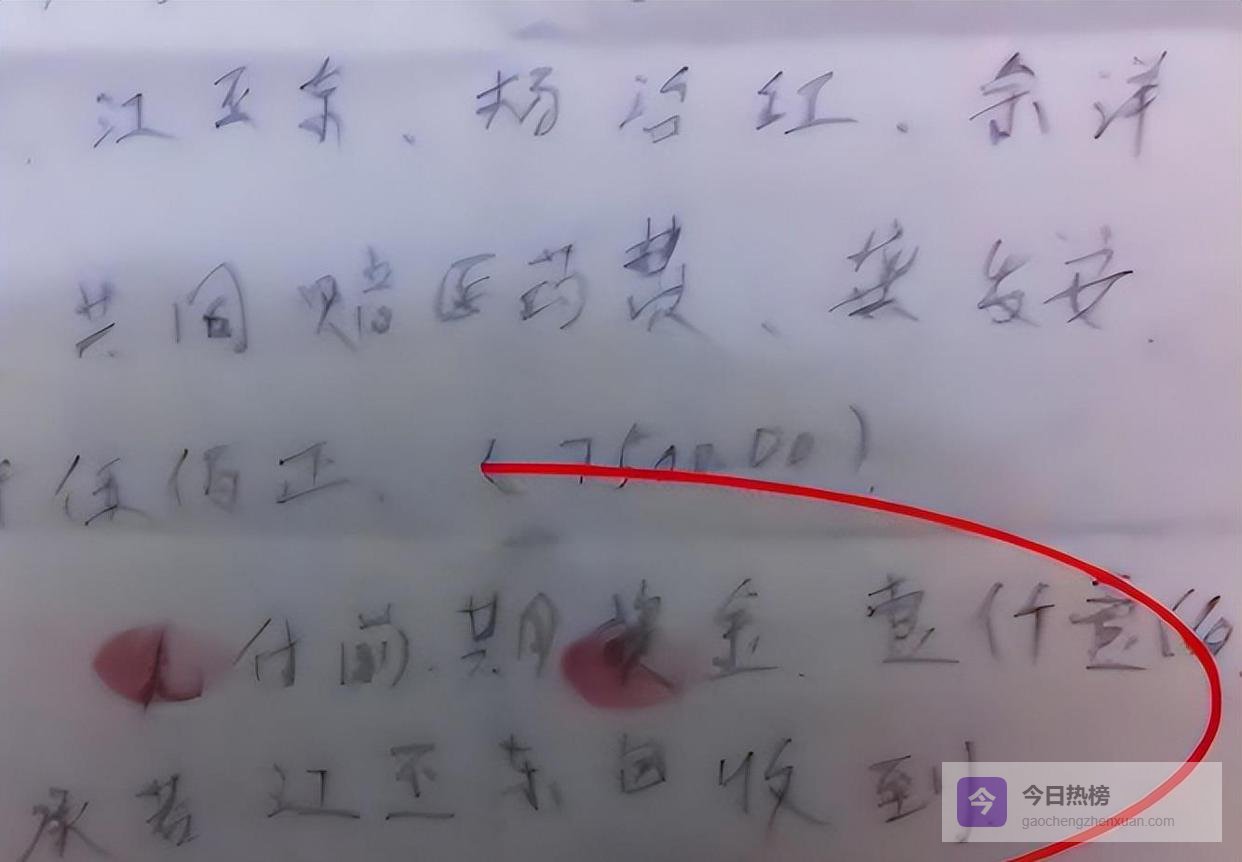 江亚东、杨治红、余洋
共同赔医药费、龚友安
仟伍佰正、(7500.00)
付前期奖金、壹仟壹佰
承若江亚东自收到
今 今日热榜
gaochengzhenxuan.com